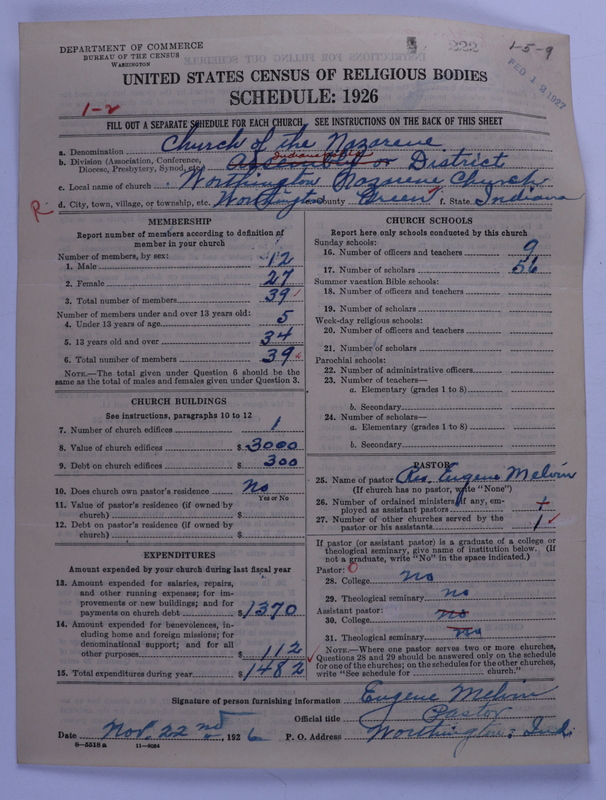 DEPARTMENT OF COMMERCE
BUREAU OF THE CENSUS
WASHINGTON
222
1-5-9
FEB 12 1927
UNITED STATES CENSUS OF RELIGIOUS BODIES
SCHEDULE: 1926
1-2
FILL OUT A SEPARATE SCHEDULE FOR EACH CHURCH. SEE INSTRUCTIONS ON THE BACK OF THIS SHEET
a. Denomination Church of the Nazarene
b. Division (Association, Conference, Diocese, Presbytery, Synod, etc.) Assembly or District
Indianapolis
c. Local name of church Worthington Nazarene Church
R.
d. City, town, village, or township, etc. Worthington County Green f. State Indiana
MEMBERSHIP
Report number of members according to definition of
member in your church
Number of members, by sex:
1. Male 12
2. Female 27
3. Total number of members 39
Number of members under and over 13 years old:
4. Under 13 years of age 5
5. 13 years old and over 34
6. Total number of members 39
NOTE.—The total given under Question 6 should be the
same as the total of males and females given under Question 3.
CHURCH BUILDINGS
See instructions, paragraphs 10 to 12
7. Number of church edifices 1
8. Value of church edifices $ 3000
9. Debt on church edifices $ 300
10. Does church own pastor's residence No
Yes or No
11. Value of pastor's residence (if owned by
church) $
12. Debt on pastor's residence (if owned by
church) $
EXPENDITURES
Amount expended by your church during last fiscal year
13. Amount expended for salaries, repairs,
and other running expenses; for im-
provements or new buildings; and for
payments on church debt $ 1370
14. Amount expended for benevolences, in-
cluding home and foreign missions; for
denominational support; and for all
other purposes $ 112
15. Total expenditures during year $ 1482
CHURCH SCHOOLS
Report here only schools conducted by this church
Sunday schools:
16. Number of officers and teachers 9
17. Number of scholars 56
Summer vacation Bible schools:
18. Number of officers and teachers
19. Number of scholars
Week-day religious schools:
20. Number of officers and teachers
21. Number of scholars
Parochial schools:
22. Number of administrative officers
23. Number of teachers—
a. Elementary (grades 1 to 8)
b. Secondary
24. Number of scholars—
a. Elementary (grades 1 to 8)
b. Secondary
PASTOR
25. Name of pastor Rev. Eugene Melvin
(If church has no pastor, write "None")
26. Number of ordained ministers, if any, em-
ployed as assistant pastors
27. Number of other churches served by the
pastor or his assistants 1
If pastor (or assistant pastor) is a graduate of a college or
theological seminary, give name of institution below. (If
not a graduate, write "No" in the space indicated.)
Pastor: 0
28. College no
29. Theological seminary no
Assistant pastor:
30. College no
31. Theological seminary no
NOTE.—Where one pastor serves two or more churches,
Questions 28 and 29 should be answered only on the schedule
for one of the churches; on the schedules for the other churches,
write "See schedule for church."
Signature of person furnishing information Eugene Melvin
Official title Pastor
Date Nov. 22nd, 1926 P. O. Address Worthington, Ind.
8-5518a 11-8034